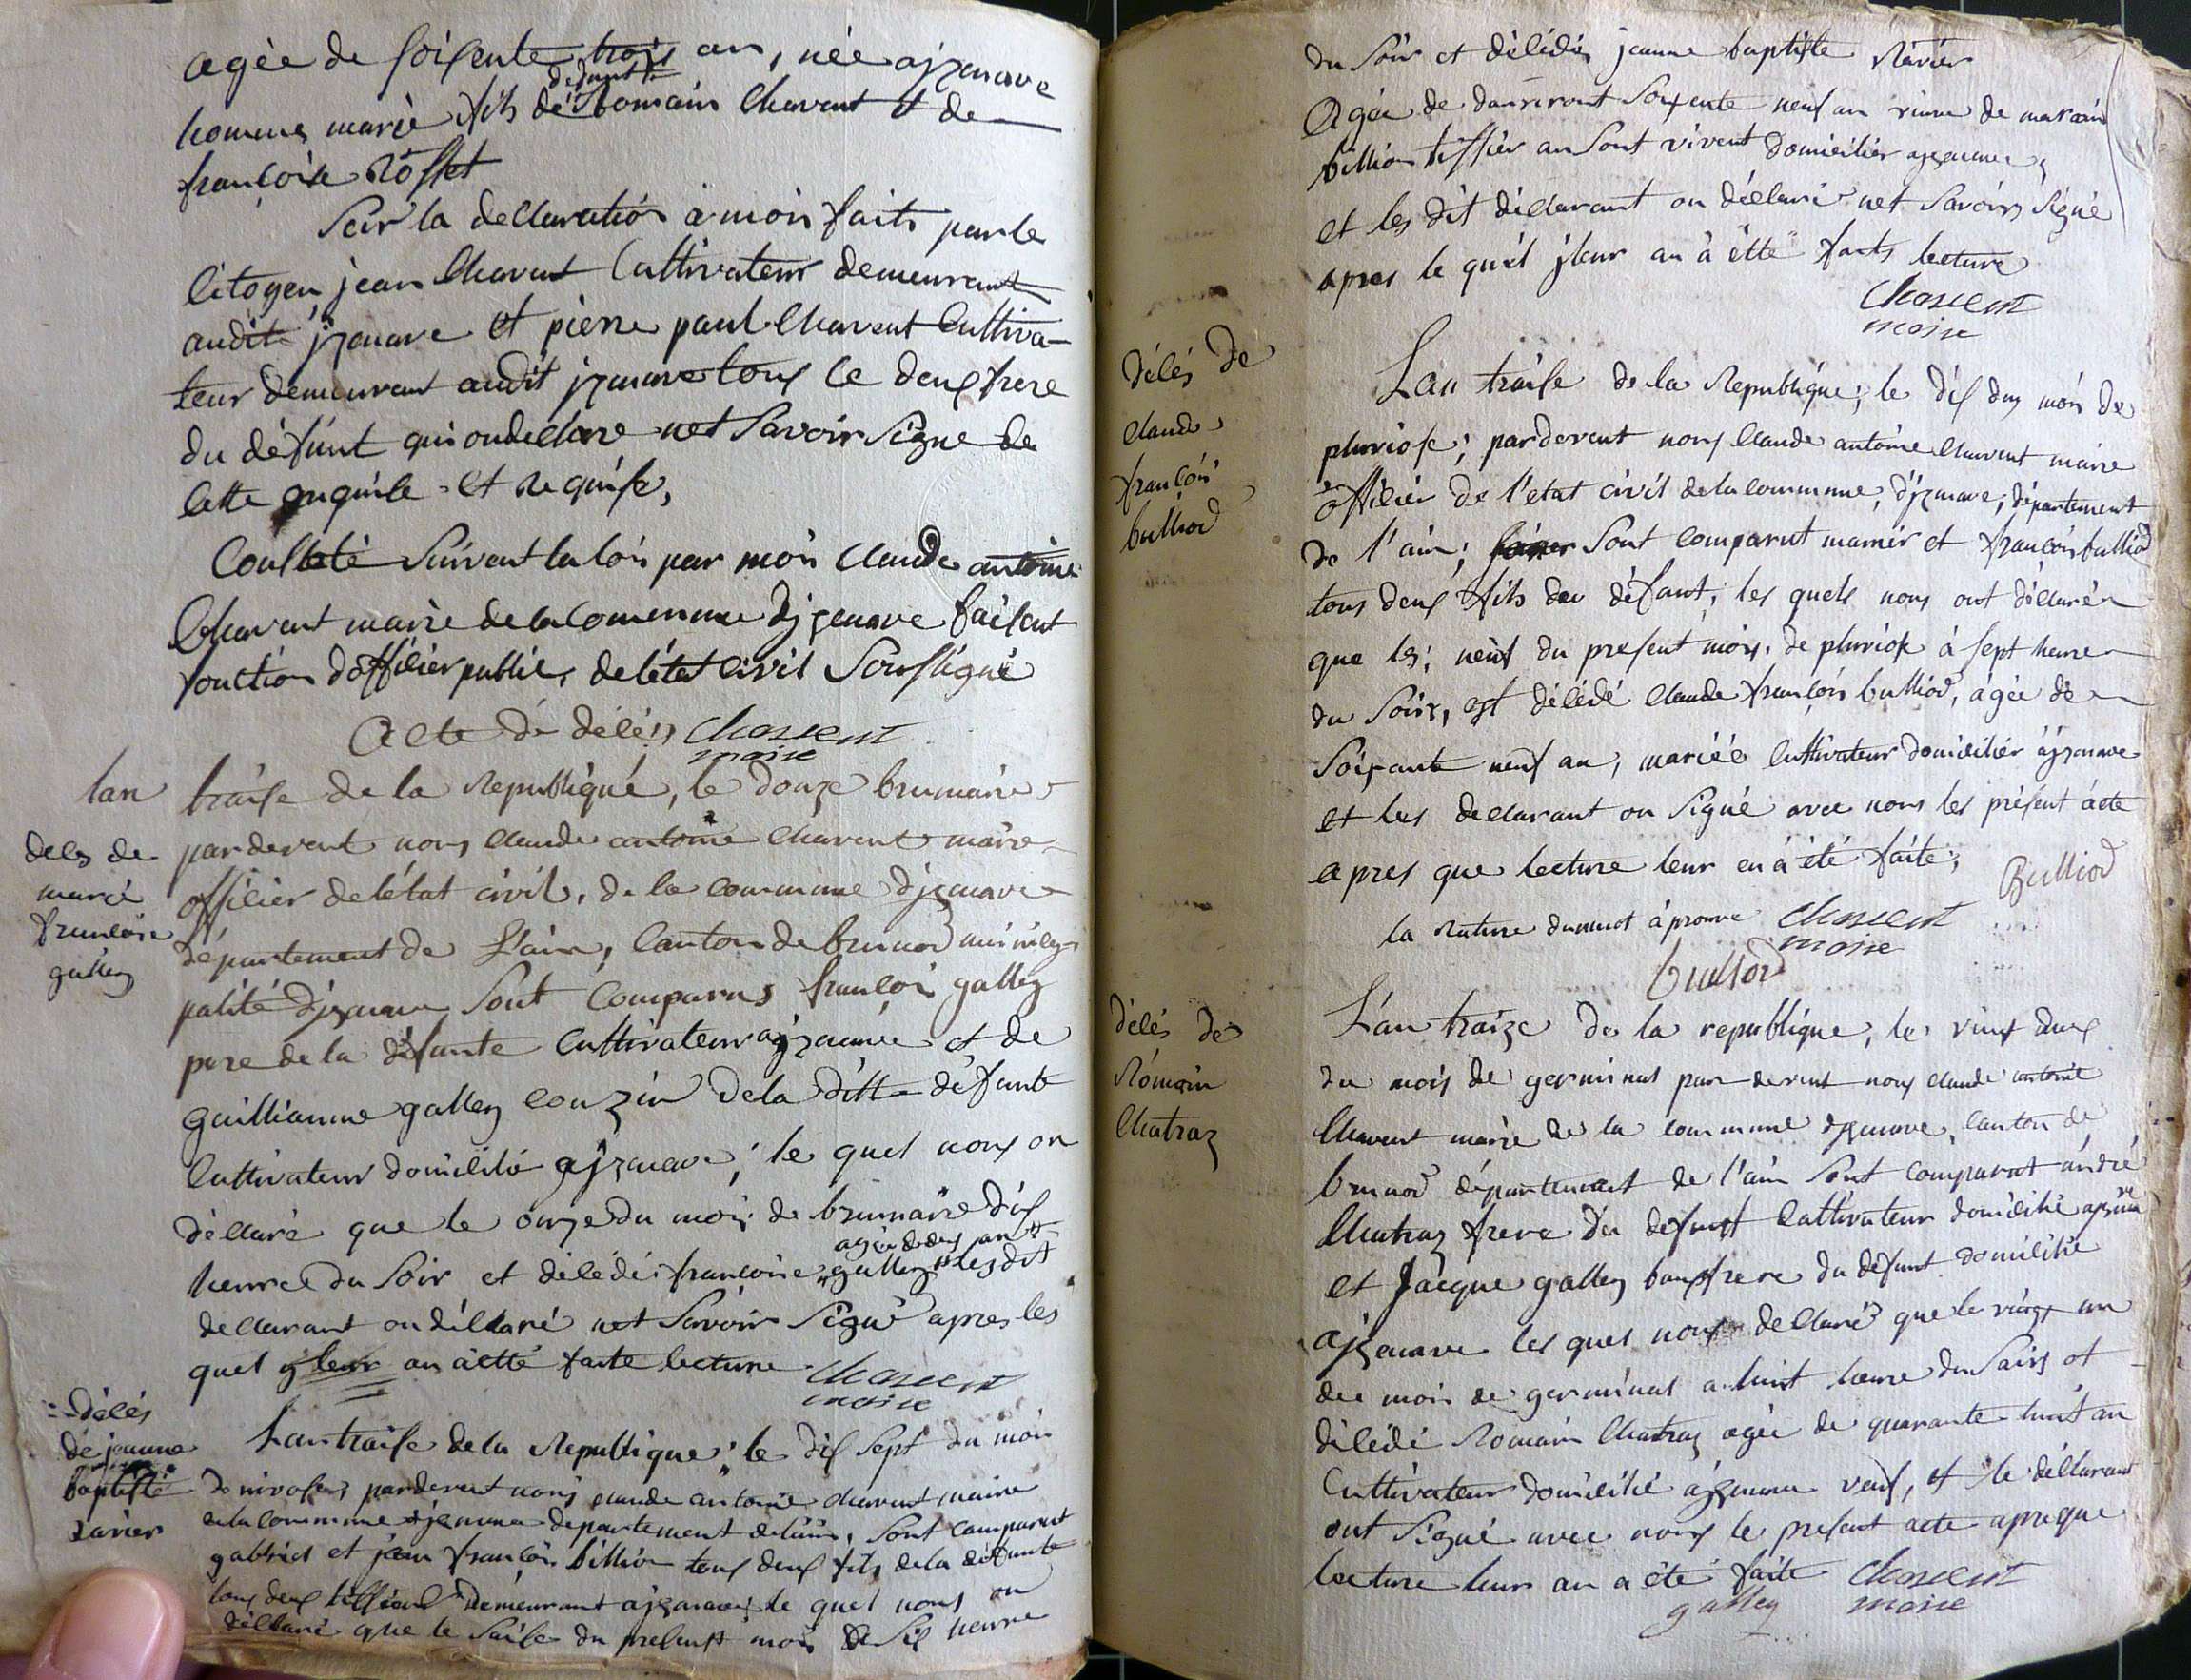 agée de soisente trois an, née ajzenave
homme marié fils de defunt Romain Chavent et de
françoise Rosset
Sur la declaration à moi faits par le
Citoyen jean Chavent Cultivateur demeurant
audit jzenave et pierre paul Chavent Cultiva-
teur demeurant audit jzenave tous le deux frere
du défunt qui on declare net savoir signe de
Cette enquise et requise,
Constaté suivent la loi par moi Claude antoine
Chavent maire de la Commune djzenave faisent
fonction d'officier public, de létat civil Soussigné
Acte de délés Chavent
maire
lan traise de la Republiqué, le douze brumaire
delés de
marie
francoise
galley
pardevent nous claude antoine Chavent maire
officier de létat civil, de la commune djzenave
département de L'ain, Canton de brenod municy-
palité djzenave Sont Comparus françois galley
pere de la défunte Cultivateur ajzenave et de
guilliaume galley couzin dela ditte défunte
Cultivateur domicilié ajzenave, le quel nous on
déclaré que le onze du mois de brumaire dix
heure du Soir et décédé françoise galley agée de deux an les dit
declarant on déclaré net Savoir Signé apres les
quel yleur an aetté faite lecture Chavent
maire
délés
de jeanne
baptiste
ravier
Lan traise de la Republique, le dix Sept du mois
de nivose, pardevent nous claude antoine chavent maire
de la commune djzenave departement de lain, Sont Comparut
gabriel et jean françois billion tous deux fils de la défunte
tous deux tissier demeurant ajzenave le quel nous on
déclaré que le Saise du present mois de Six heure
du Soir et décédé jeanne baptiste Ravier
Agée de Soixente neuf an veuve de
billion tissier an Sont vivent domicilier ajzenave,
et les dit déclarant on déclaré net Savoir Signé
apres le quel jleur an à étté faits lecture
Chavent
maire
délés de
claude
françois
bulliod
Lan traise de la Republique; le dix du mois de
pluviose; pardevent nous Claude antoine chavent maire
officier de l'etat civil de la commune, djzenave, département
de l'ain; Sont Comparut et françois bulliod
tous deux fils du défunt; les quels nous ont déclaré
que les; neuf du present mois, de pluviose à sept heure
du Soir, est décédé claude françois bulliod, agée de
Soixante neuf an, mariéé Cultivateur domicilier ajzenave
et les declarant on Signé avec nous les présent acte
apres que lecture leur en à été faite;
Bulliod
la rature du mot àprouve Chavent
maire
bulliod
délés de
Romain
Chatraz
L'an traize de la republique, le vint deux
du mois de germinal par devent nous claude antoine
Chavent maire de la commune djzenave, Canton de
brenod département de l'ain Sont comparut andré
Chatraz frere du defunt Cultivateur domicilié ajzenave
et Jacque galley beaufrere du défunt domicilié
ajzenave les quel nous declaré que le vingt un
du mois de germinal a huit heure du Soir et
décédé Romain Chatraz agée de quarante huit an
Cultivateur domicilié ajzenave veuf, et le déclarant
ont Signé avec nous le present acte apreque
lecture leur an a été faite Chavent
galley maire